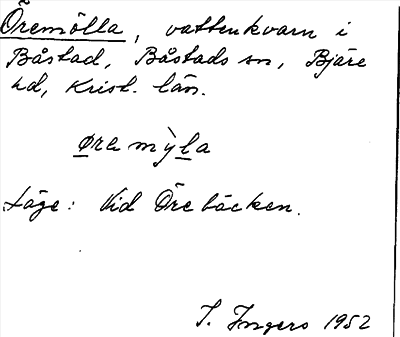 Öremölla, vattenkvarn i
Båstad, Båstads sn, Bjäre
hd, Krist. län.
øre mỳla
Läge: Vid Örebäcken.
I. Ingers 1952